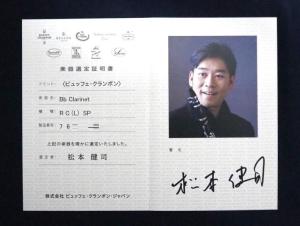 楽器選定証明書
ブランド： 〈ビュッフェ・クランポン〉
楽器名： Bb Clarinet
機種： R C (L) SP
製造番号： 7 6
上記の楽器を確かに選定いたしました。
選定者： 松本 健司
株式会社 ビュッフェ・クランポン・ジャパン
署名
松本健司